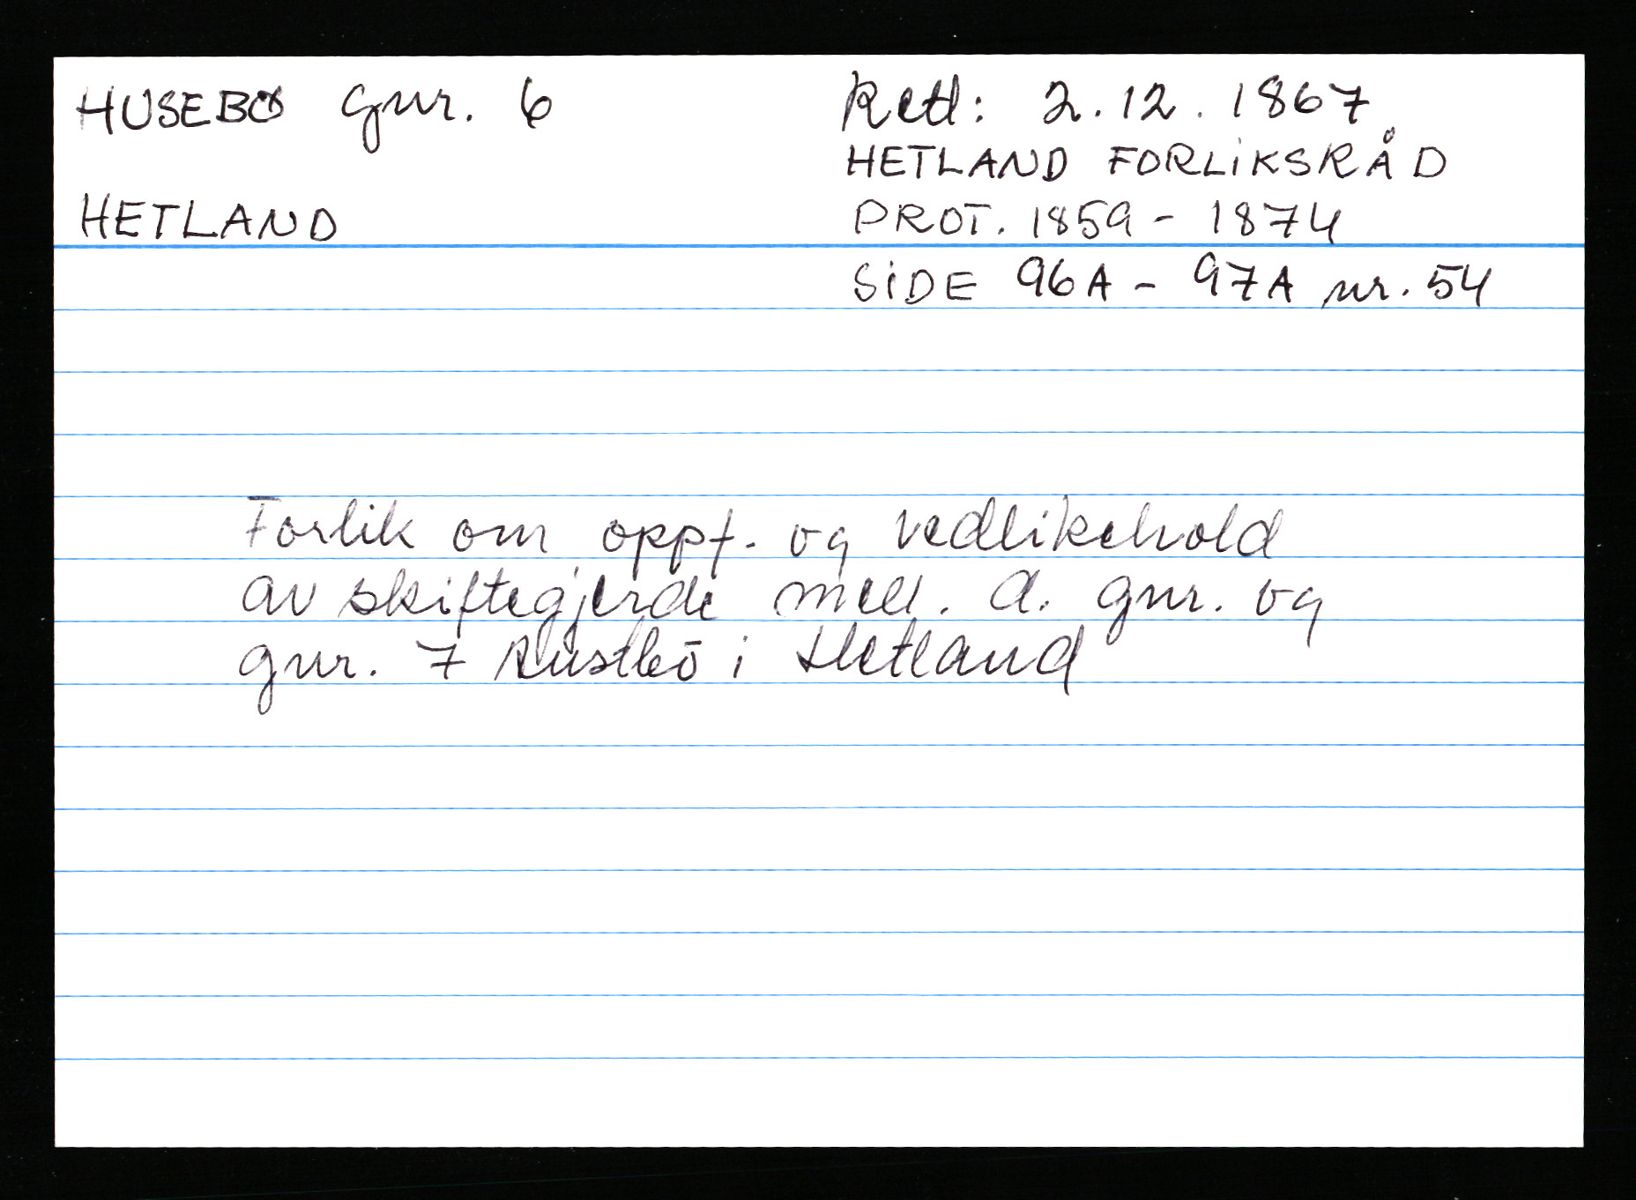 HUSEBØ gnr. 6
HETLAND
Rett: 2.12.1867
HETLAND FORLIKSRÅD
PROT. 1859 - 1874
SIDE 96A - 97A nr. 54
Forlik om oppf. og vedlikehold
av skiftegjerde mell. d. gnr. og
gnr. 7 i Hetland